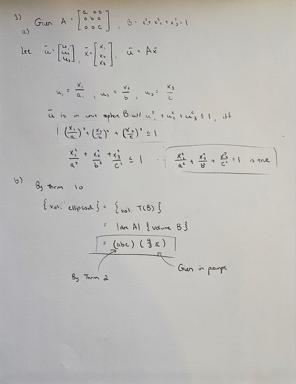 3) Given A = [a 0 0; 0 b 0; 0 0 c], B = x₁² + x₂² + x₃² = 1
a)
Let ū = [u₁; u₂; u₃], x̄ = [x₁; x₂; x₃], ū = Ax̄
u₁ = x₁/a, u₂ = x₂/b, u₃ = x₃/c
ū is in unit sphere B will u₁² + u₂² + u₃² ≤ 1, iff
(x₁/a)² + (x₂/b)² + (x₃/c)² ≤ 1
x₁²/a² + x₂²/b² + x₃²/c² ≤ 1 ∴ x₁²/a² + x₂²/b² + x₃²/c² = 1 is true
b) By thrm 10
{vol. ellipsoid} = {vol. T(B)}
= |det A| {volume B}
= (abc) (4/3 π)
By Thrm 2
Given in prompt